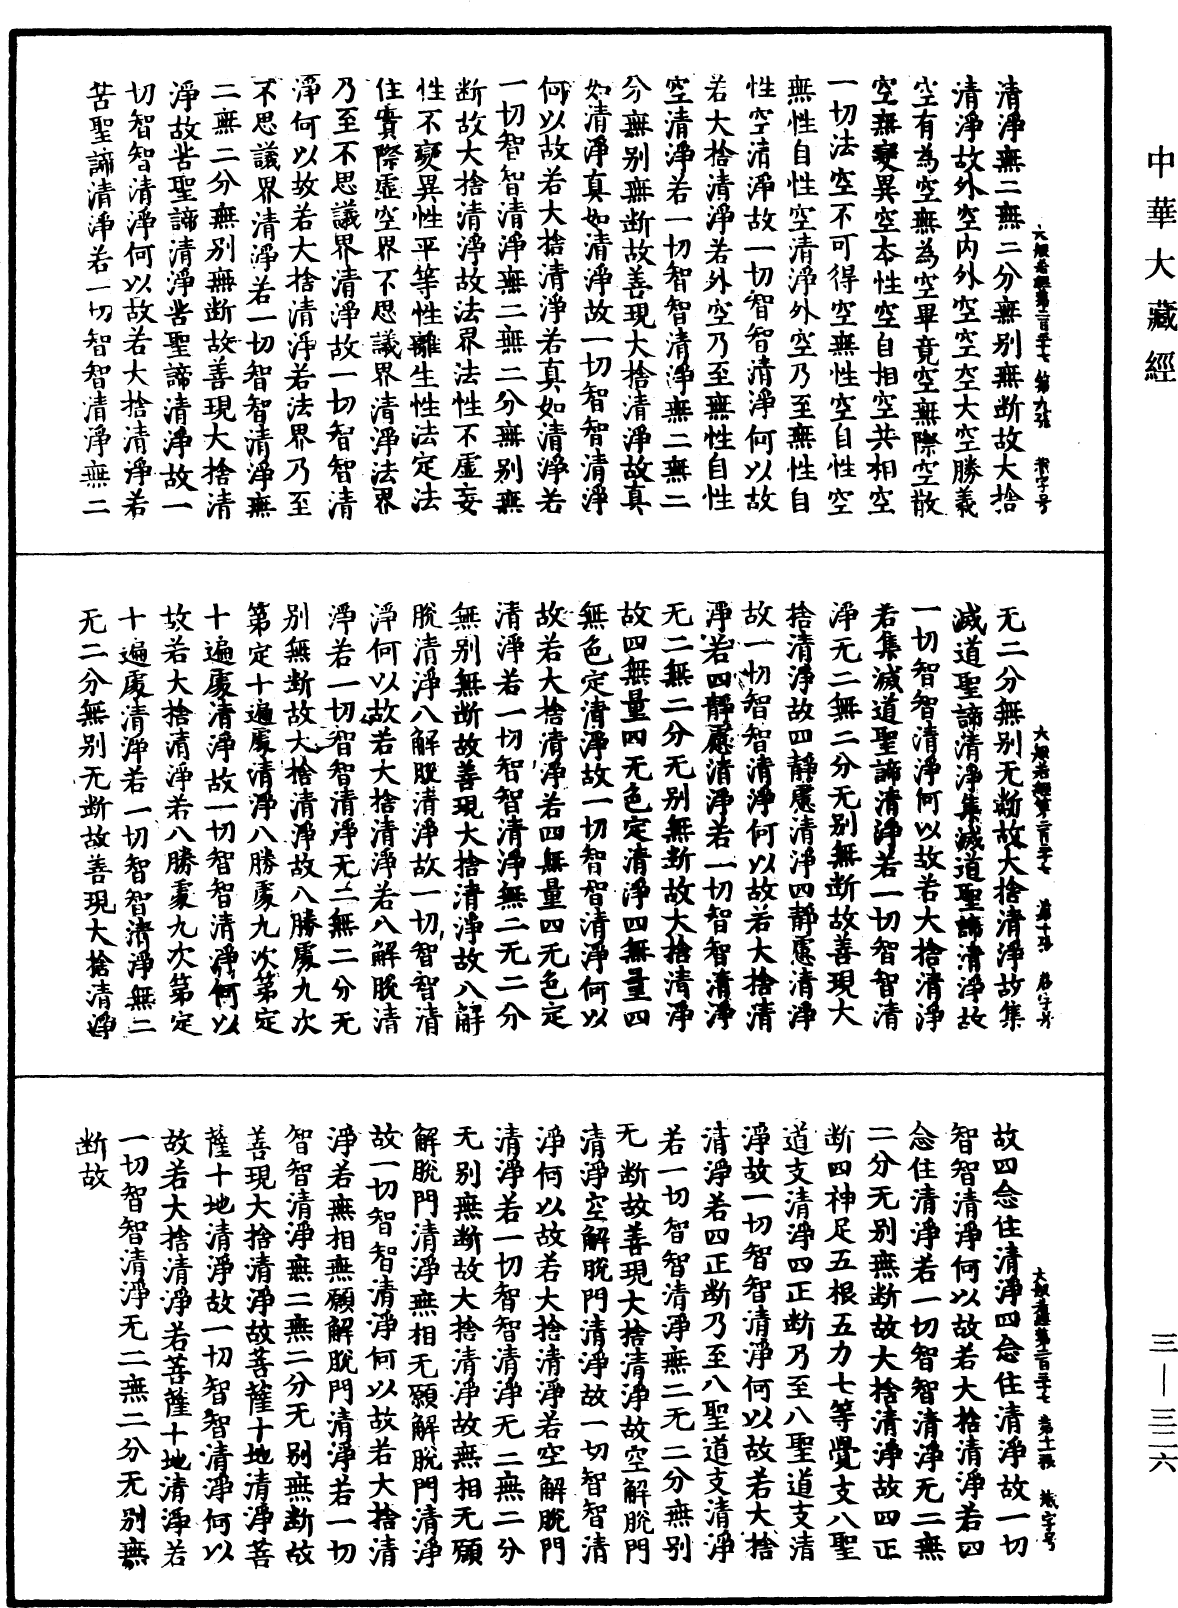 中華大藏經
大般若經第二百三十七 第九張
清淨無二無二分無別無斷故大捨
清淨故外空內外空空空大空勝義
空有為空無為空畢竟空無際空散
空無變異空本性空自相空共相空
一切法空不可得空無性空自性空
無性自性空清淨外空乃至無性自
性空清淨故一切智智清淨何以故
若大捨清淨若外空乃至無性自性
空清淨若一切智智清淨無二無二
分無別無斷故善現大捨清淨故真
如清淨真如清淨故一切智智清淨
何以故若大捨清淨若真如清淨若
一切智智清淨無二無二分無別無
斷故大捨清淨故法界法性不虛妄
性不變異性平等性離生性法定法
住實際虛空界不思議界清淨法界
乃至不思議界清淨故一切智智清
淨何以故若大捨清淨若法界乃至
不思議界清淨若一切智智清淨無
二無二分無別無斷故善現大捨清
淨故苦聖諦清淨苦聖諦清淨故一
切智智清淨何以故若大捨清淨若
苦聖諦清淨若一切智智清淨無二
大般若經第二百三十七 第十張
无二分無別无斷故大捨清淨故集
滅道聖諦清淨集滅道聖諦清淨故
一切智智清淨何以故若大捨清淨
若集滅道聖諦清淨若一切智智清
淨无二無二分无別無斷故善現大
捨清淨故四靜慮清淨四靜慮清淨
故一切智智清淨何以故若大捨清
淨若四靜慮清淨若一切智智清淨
无二無二分无別無斷故大捨清淨
故四無量四无色定清淨四無量四
無色定清淨故一切智智清淨何以
故若大捨清淨若四無量四无色定
清淨若一切智智清淨無二无二分
無別無斷故善現大捨清淨故八解
脫清淨八解脫清淨故一切智智清
淨何以故若大捨清淨若八解脫清
淨若一切智智清淨无二無二分无
別無斷故大捨清淨故八勝處九次
第定十遍處清淨八勝處九次第定
十遍處清淨故一切智智清淨何以
故若大捨清淨若八勝處九次第定
十遍處清淨若一切智智清淨無二
无二分無別无斷故善現大捨清淨
大般若經第二百三十七 第十一張
故四念住清淨四念住清淨故一切
智智清淨何以故若大捨清淨若四
念住清淨若一切智智清淨无二無
二分无別無斷故大捨清淨故四正
斷四神足五根五力七等覺支八聖
道支清淨四正斷乃至八聖道支清
淨故一切智智清淨何以故若大捨
清淨若四正斷乃至八聖道支清淨
若一切智智清淨無二无二分無別
无斷故善現大捨清淨故空解脫門
清淨空解脫門清淨故一切智智清
淨何以故若大捨清淨若空解脫門
清淨若一切智智清淨无二無二分
无別無斷故大捨清淨故無相无願
解脫門清淨無相无願解脫門清淨
故一切智智清淨何以故若大捨清
淨若無相無願解脫門清淨若一切
智智清淨無二無二分无別無斷故
善現大捨清淨故菩薩十地清淨菩
薩十地清淨故一切智智清淨何以
故若大捨清淨若菩薩十地清淨若
一切智智清淨无二無二分无別無
斷故
三—三二六